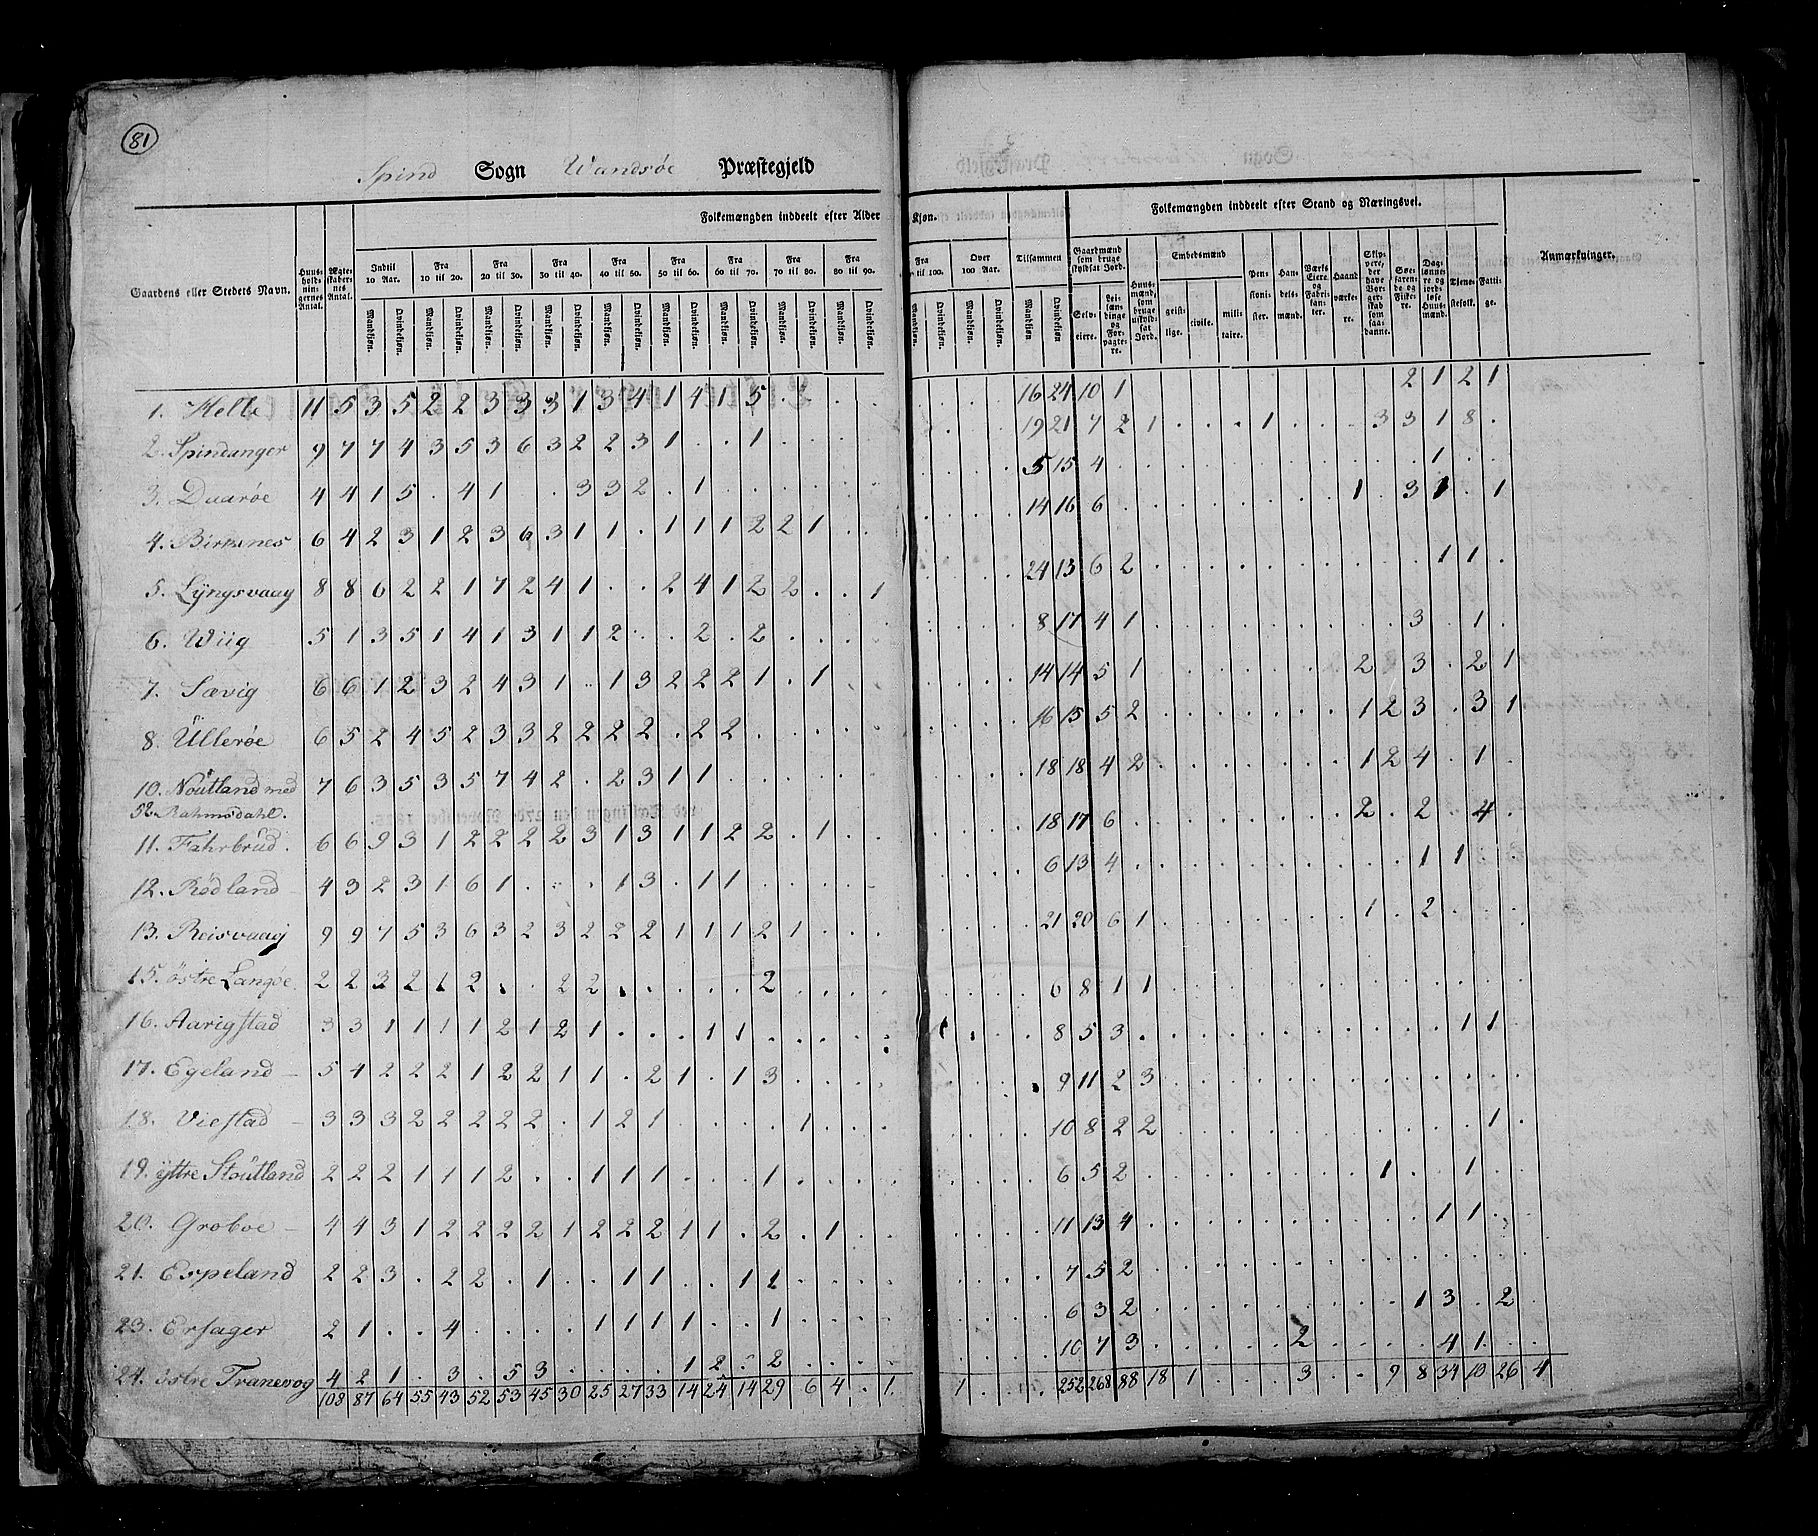 81
Spind Sogn Wandsøe Præstegjeld
Folkemængden inddeelt efter Alder
Kjøn.
Folkemængden inddeelt efter Stand og Næringsvei.
Gaardens eller Stedets Navn.
Huusholdningernes Antal.
Ægteskabernes Antal.
Indtil 10 Aar.
Fra 10 til 20.
Fra 20 til 30.
Fra 30 til 40.
Fra 40 til 50.
Fra 50 til 60.
Fra 60 til 70.
Fra 70 til 80.
Fra 80 til 90.
Fra til 100.
Over 100 Aar.
Tilsammen
Mandkjøn. Qvindekjøn.
Gaardmænd som bruge skyldsat Jord.
Selveiere.
Leilændinge og Forpagtere.
Huusmænd, som bruge uskyldsat Jord.
Embedsmænd
geistlige. civile. militaire.
Pensionister.
Handelsmænd.
Værks Eiere og Fabrikanter.
Haandværkere.
Skippere, der have Borgerskab som saadanne.
Søefarende og Fiskere.
Dagslønnere og jordløse Huusmænd.
Tjenestefolk.
Fattige.
Anmærkninger.
1. Helle 11 5 3 5 2 2 3 3 3 1 3 4 1 4 1 5 . . . . 16 24 10 1 2 1 2 1
2. Spindanger 9 7 7 4 3 5 3 6 3 2 2 3 1 . . 1 . . . . 19 21 7 2 1 . . . 1 . . . 3 3 1 8 .
3. Daarøe 4 4 1 5 . 4 1 . . 3 3 2 . 1 . . . . 5 15 4 . . . 1
4. Birkenes 6 4 2 3 1 2 3 6 3 1 1 . 1 1 1 2 2 1 . . 14 16 6 . . . 1 . 3 1 . 1
5. Lÿngsvaag 8 8 6 2 2 1 7 2 4 1 . . 2 4 1 2 2 . . 1 24 13 6 2 . . . 1 1 .
6. Wiig 5 1 3 5 1 4 1 3 1 1 2 . . 2 . 2 . . . . 8 17 4 1 . . . 3 . 1 .
7. Sævig 6 6 1 2 3 2 4 3 1 . 1 3 2 2 2 1 . 1 . . 14 14 5 1 . . . 2 . 3 . 2 1
8. Ullerøe 6 5 2 4 5 2 3 3 2 2 2 2 . 2 2 . . . . 16 15 5 2 . . . 1 2 3 . 3 1
10. Noutland med 7 6 3 5 3 5 7 4 2 . 2 3 1 1 . . . . 18 18 4 2 . . . 1 2 4 . 1 .
52. Rahmsdahl.
11. Fahrbrud. 6 6 9 3 1 2 2 2 2 3 1 3 1 1 2 2 . 1 . . 18 17 6 . . . 2 . 2 . 4 .
12. Rødland 4 3 2 3 1 6 1 . . . 1 3 . 1 1 . . . . 6 13 4 . . . 1 1 . .
13. Reisvaag 9 9 7 5 3 6 3 2 3 2 2 2 1 1 1 2 1 . . . 21 20 6 1 . . . 1 . 2 . . .
15. östre Langøe. 2 2 3 2 1 2 . . 2 2 . . . . . 2 . . . . 6 8 1 1 . . .
16. Aarigstad 3 3 1 1 1 1 2 1 2 1 . . . 1 1 . . . . . 1 . . 8 5 3 . . . 1 1 .
17. Egeland 5 4 2 2 2 1 2 2 1 1 . 2 1 . 1 3 . . . . 9 11 2 3 . . .
18. Viestad 3 3 3 2 2 2 2 2 . 1 2 1 . . . . 1 . . . 10 8 2 2 . . . 1 .
19. ÿttre Stoutland 2 2 2 1 1 1 2 . . 1 1 1 . . . 1 . . . . 6 5 2 . . . 1 . . 1 . .
20. Groboe 4 4 3 1 2 2 2 2 1 2 2 2 1 1 . 2 . 1 . . 11 13 4 . . . 1 1 . .
21. Espeland 2 2 3 . 2 2 . 1 . . 1 1 . . 1 1 . . . . 7 5 2 . . .
23. Ersager 2 1 . . 4 . . . . 1 1 1 1 . . 1 . . . . 6 3 2 . . . 1 3 . 2 .
24. östre Tranevog 4 2 1 . 3 . 5 3 . . . . 1 2 . 2 . . . . 10 7 3 . . . 2 . . . 4 1 . .
108 87 64 55 43 52 53 45 30 25 27 33 14 24 14 29 6 4 . 1 1 . . . 252 268 88 18 1 . . . 3 . . 9 8 34 10 26 4